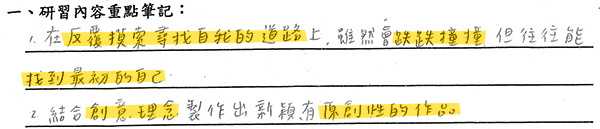 一、研習內容重點筆記：
1. 在反覆摸索尋找自我的道路上，雖然會跌跌撞撞但往往能
找到最初的自己
2. 結合創意理念製作出新穎有原創性的作品